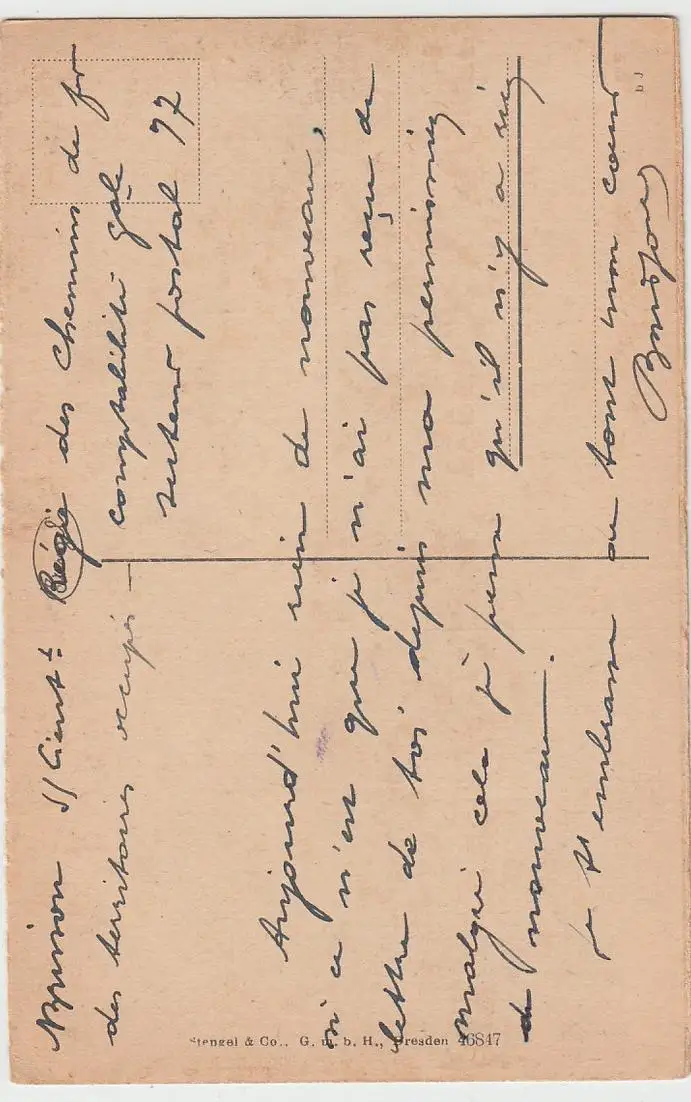 Brinon S/Lieut t Régie des Chemins de fer
des territoires occupés –
comptabilité gale
secteur postal 97
Aujourd'hui rien de nouveau,
si ce n'est que je n'ai pas reçu de
lettre de toi depuis ma permission
malgré cela je pense qu'il n'y a rien
de nouveau.
je t'embrasse de tout mon coeur
Stengel & Co., G. m. b. H., Dresden 46847